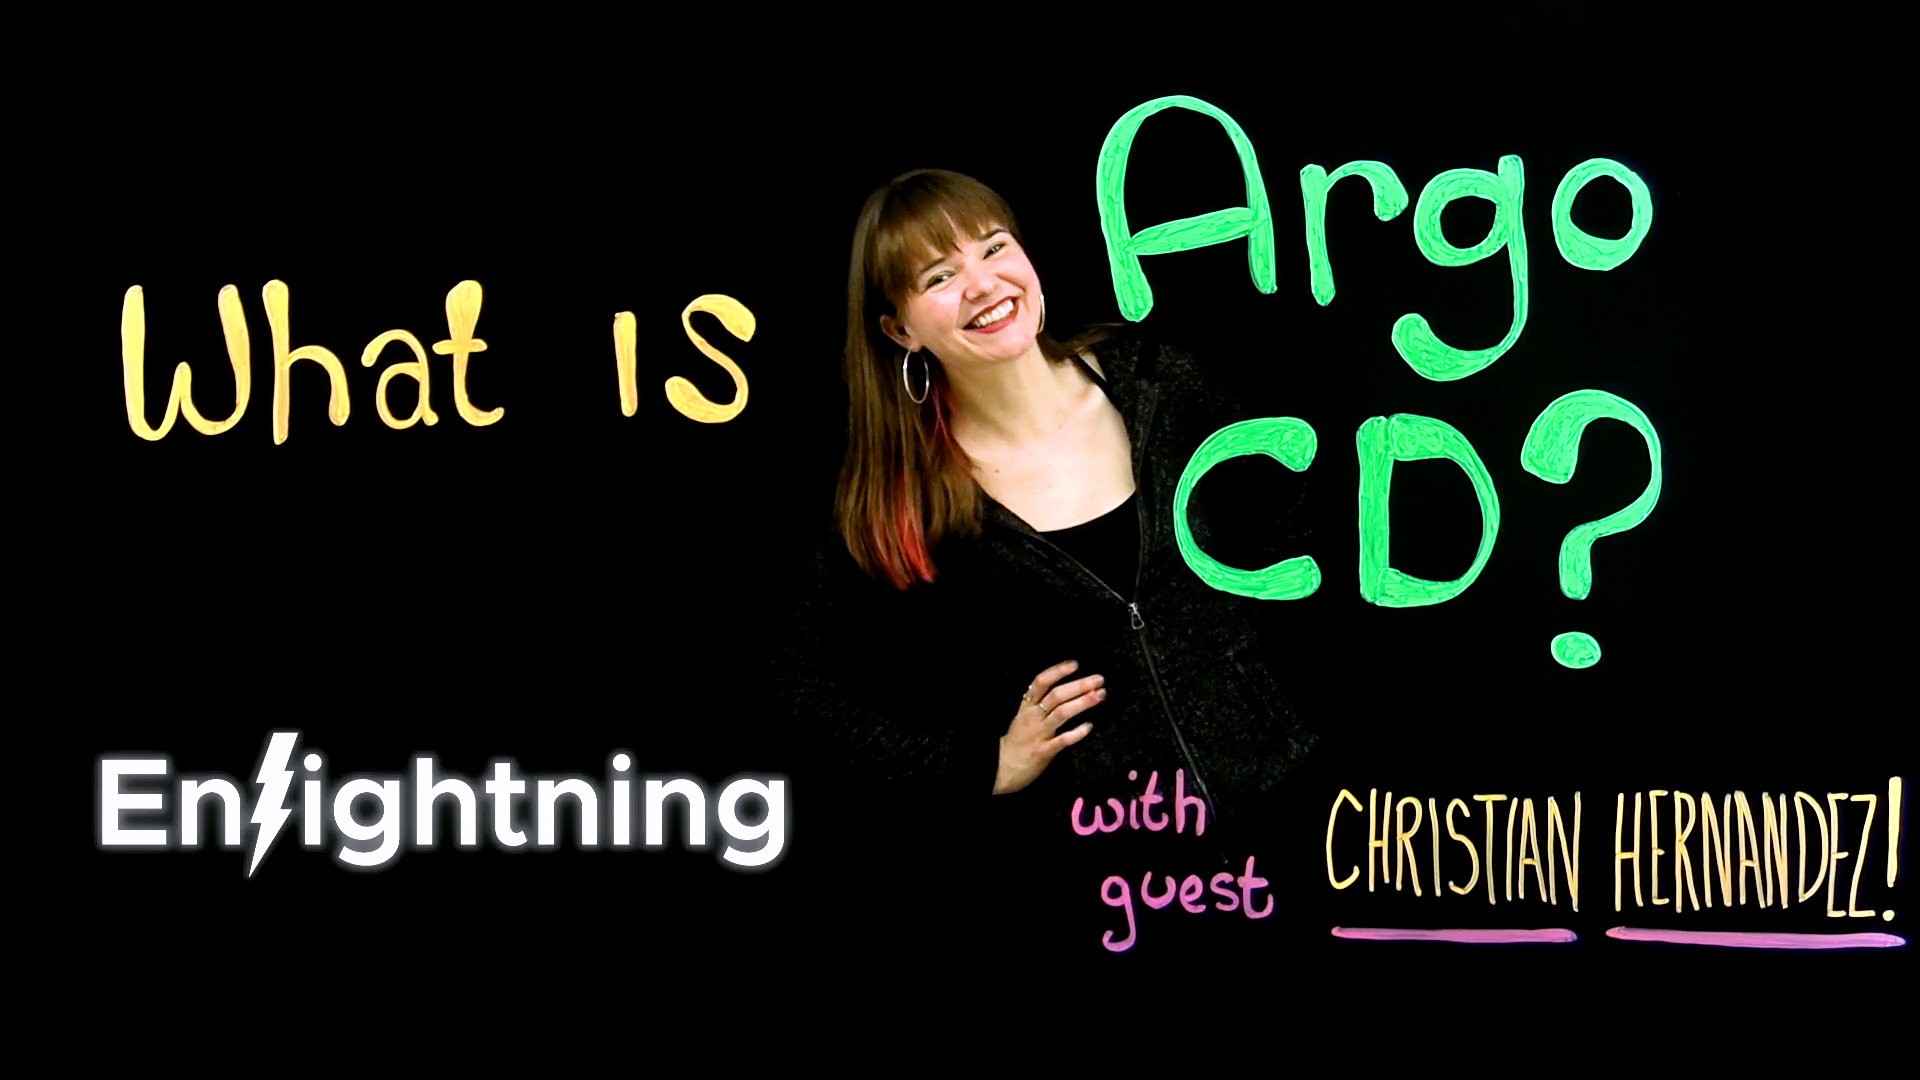 What is
Argo
CD?
Enlightning
with
guest
CHRISTIAN HERNANDEZ!